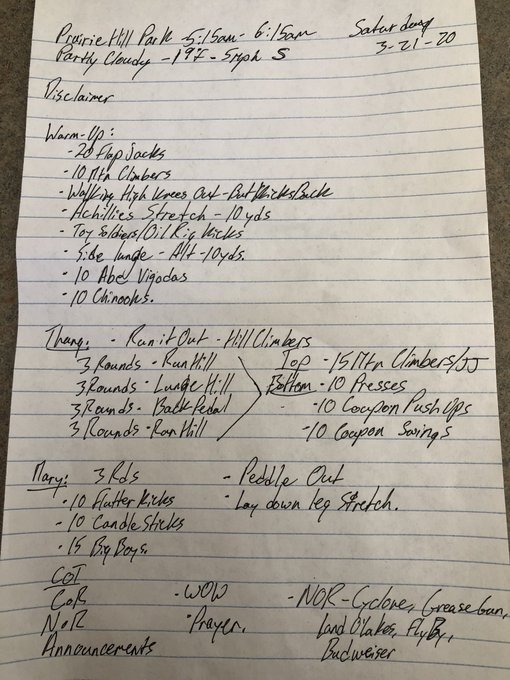 Prairie Hill Park 5:15am - 6:15am Saturday
Partly Cloudy - 19F - 5mph S 3-21-20
Disclaimer
Warm-Up:
- 20 Flap Jacks
- 10 Mtn Climbers
- Walking High Knees Out - Butt Kicks Back
- Achillies Stretch - 10yds
- Toy Soldiers/Oil Rig Kicks
- Side Lunge - Alt - 10yds.
- 10 Abe Vigodas
- 10 Chinooks.
Thang: - Run it Out - Hill Climbers
3 Rounds - Run Hill Top - 15 Mtn Climbers/JJ
3 Rounds - Lunge Hill Bottom - 10 Presses
3 Rounds - Back Pedal - 10 Coupon Push Ups
3 Rounds - Run Hill - 10 Coupon Swings
Mary: 3 Rds - Peddle Out
- 10 Flutter Kicks - Lay down leg Stretch.
- 10 Candle Sticks
- 15 Big Boys.
COT
CoR - WOW - NOR - Cyclone, Grease Gun,
NoR - Prayer, Land O'Lakes, FlyBy,
Announcements Budweiser